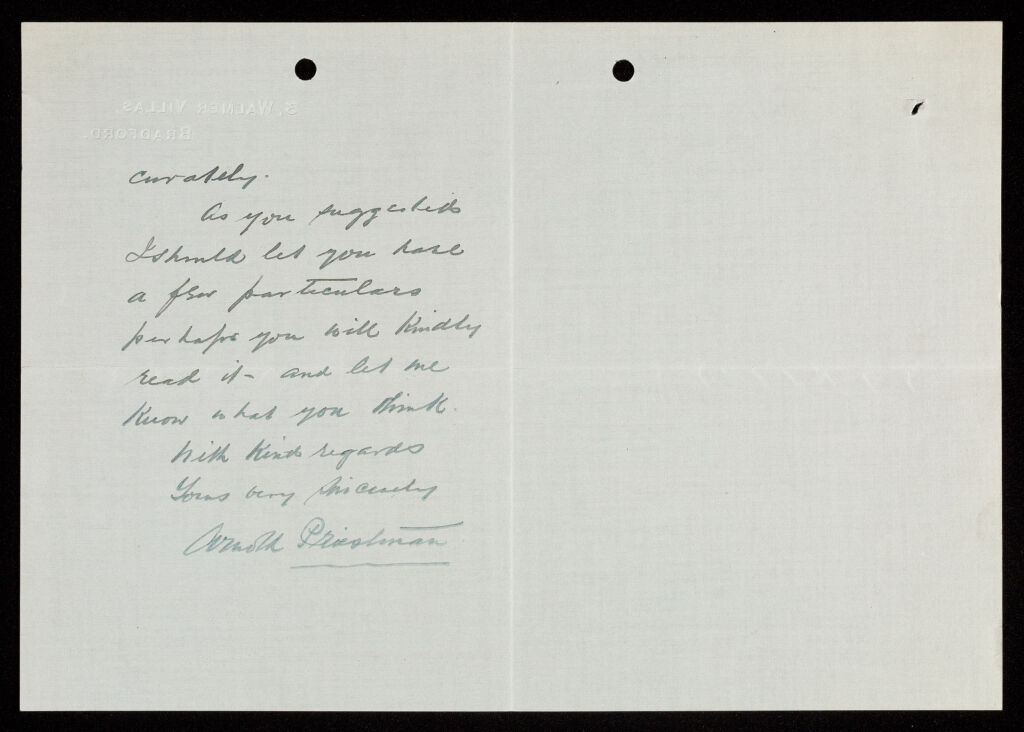 3, WALMER VILLAS,
BRADFORD.
curately.
As you suggested
I should let you have
a few particulars
perhaps you will kindly
read it - and let me
know what you think.
With kind regards
Yours very sincerely
Arnold Priestman